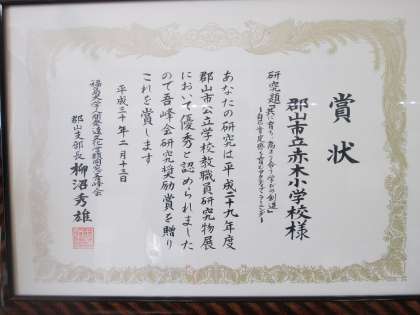 賞状
郡山市立赤木小学校様
研究題「共に育ち、高まり合う学びの創造」
あなたの研究は平成二十九年度
郡山市公立学校教職員研究物展
において優秀と認められました
ので吾峰会研究奨励賞を贈り
これを賞します
平成三十年二月十三日
福島大学人間発達文化学類同窓会吾峰会
郡山支部長 柳沼秀雄